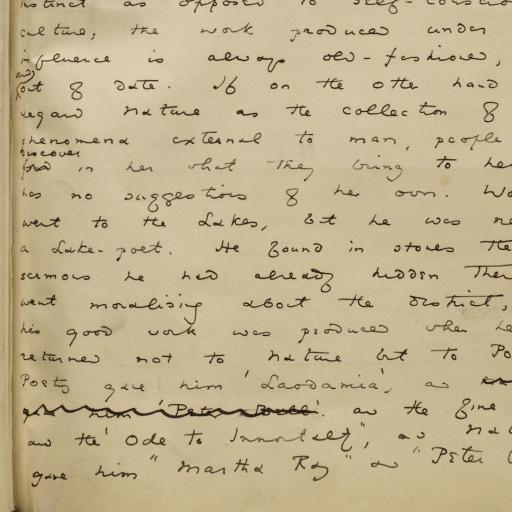 instinct as opposed to self-conscio
culture, the work produced under
influence is always old-fashioned,
and
out of date. If on the other hand
regard Nature as the collection of
phenomena external to man, people
discover
in her what they bring to her
has no suggestions of her own. Wo
went to the Lakes, but he was ne
a Lake-poet. He found in stones the
sermons he had already hidden ther
went moralising about the district,
his good work was produced when he
returned not to Nature but to Po
Poetry gave him 'Laodamia', and
gave him 'Peter Bell'. and the fine
and the 'Ode to Immortality', and Na
gave him "Martha Ray" and "Peter